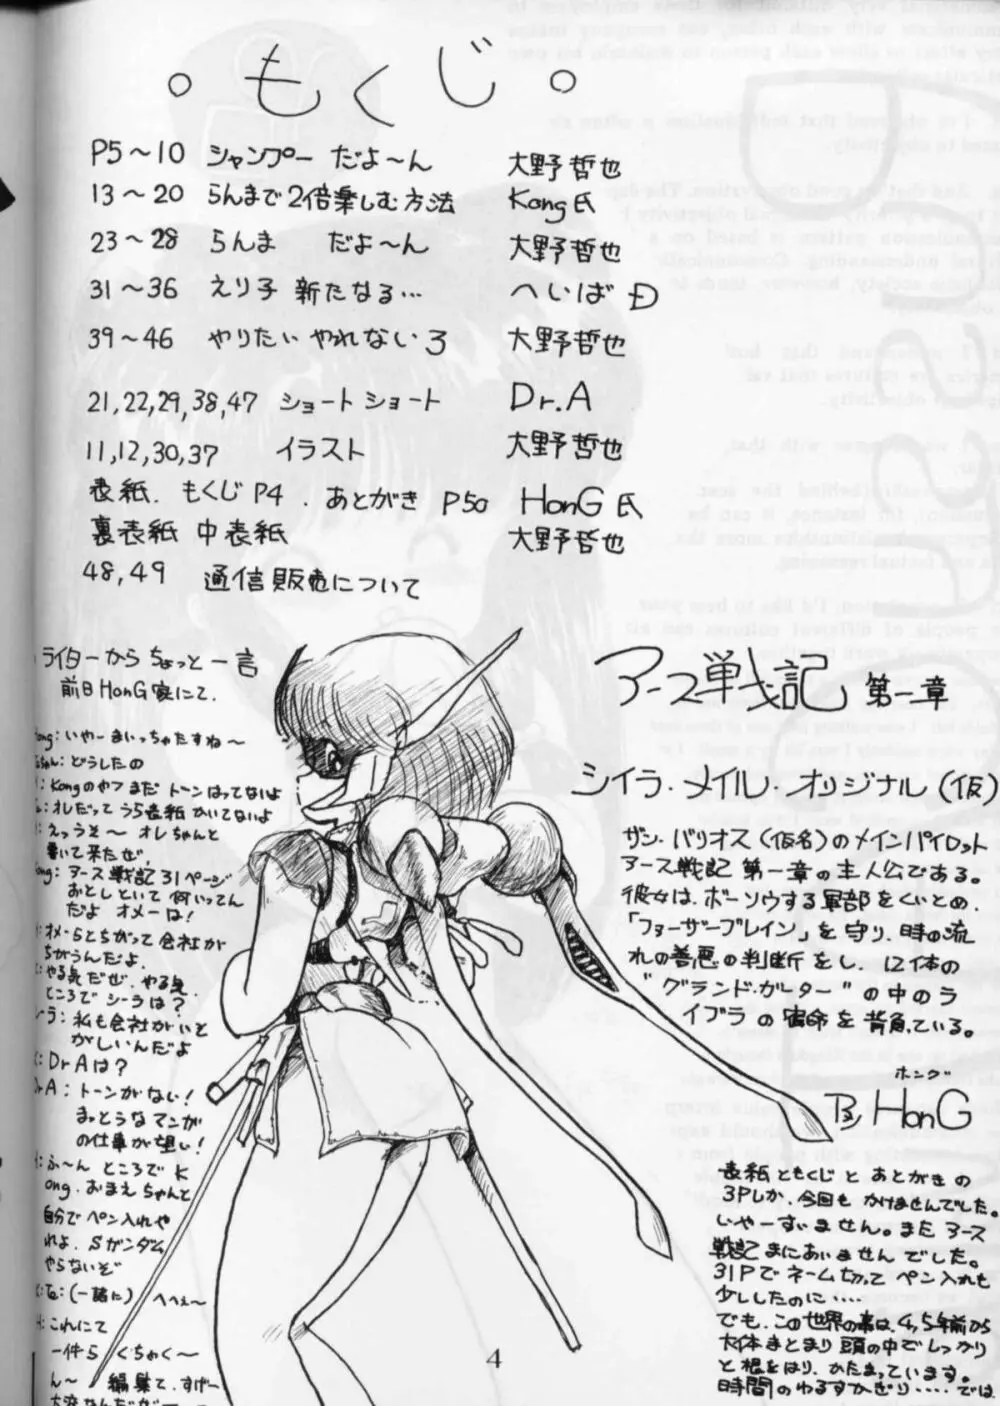 。もくじ。
P5～10 シャンプー だよ～ん 大野哲也
13～20 らんまで2倍楽しむ方法 Kong氏
23～28 らんま だよ～ん 大野哲也
31～36 えり子 新たなる… へいばĐ
39～46 やりたい やれない ろ 大野哲也
21,22,29,38,47 ショートショート Dr.A
11,12,30,37 イラスト 大野哲也
表紙. もくじP4. あとがき P50 HonG氏
裏表紙 中表紙 大野哲也
48,49 通信販売について
ライターからちょっと一言
前日HonG家にて.
ong: いやーまいっちゃたすね～
ちゃん: どうしたの
: Kongのやつまだトーンはってないよ
: オレだってうら表紙かいてないよ
: えっうそ～ オレちゃんと
書いて来たぜ,
ong: アース戦記31ページ
おとしといて何いってん
だよ オメーは!
: オメーらとちがって会社が
ちがうんだよ.
: やる気だぜ. やる気.
ところでシーラは?
ーラ: 私も会社がいと
がしいんだよ
: DrAは?
rA: トーンがない!
まっとうなマンガ
の仕事が望い!
: ふ～ん ところでK
ong. おまえちゃんと
自分でペン入れや
れよ. Sガンダム
やらないぞ
: (一諸に) へへぇ～
: これにて
一件らくちゃく～
ん～ 編集て. すげー
大変なんだが
アース戦記 第一章
シイラ・メイル・オリジナル(仮)
ザン・バリオス(仮名)のメインパイロット
アース戦記 第一章の主人公である。
彼女は、ボーソウする軍部をくいとめ.
「フォーザーブレイン」を守り、時の流
れの善悪の判断をし、12体の
"グランド・ガーター"の中のラ
イブラの宿命を背負ている。
ホング
By HonG
表紙ともくじとあとがきの
3Pしか、今回もかけませんでした。
いやーすいません。また アース
戦記まにあいませんでした。
31Pでネーム切ってペン入れも
少ししたのに‥‥
でも、この世界の事は、4,5年前から
大体まとまり頭の中でしっかり
と根をはり、かたまっています。
時間のゆるすかぎり‥‥では、
4